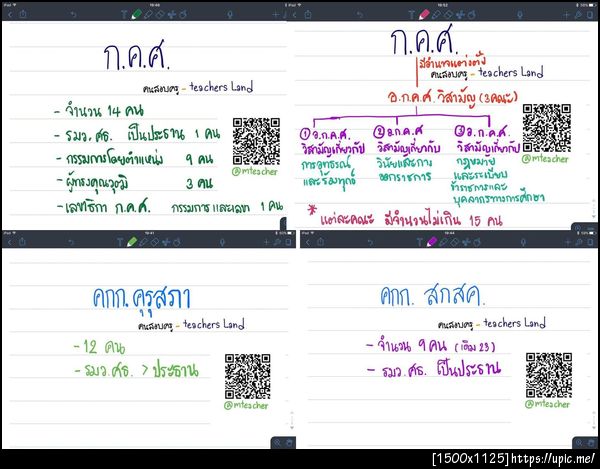 iPad 19:48
ก.ค.ศ.
คนสอบครู - teachers Land
- จำนวน 14 คน
- รมว.ศธ. เป็นประธาน 1 คน
- กรรมการโดยตำแหน่ง 9 คน
- ผู้ทรงคุณวุฒิ 3 คน
- เลขาธิกา ก.ค.ศ. กรรมการ และเลขา 1 คน
@mteacher
iPad 19:52
ก.ค.ศ.
มีอำนาจแต่งตั้ง
คนสอบครู - teachers Land
อ.ก.ค.ศ. วิสามัญ (3คณะ)
① อ.ก.ค.ศ.
วิสามัญเกี่ยวกับ
การอุทธรณ์
และร้องทุกข์
② อ.ก.ค.ศ
วิสามัญเกี่ยวกับ
วินัยและการ
ออกราชการ
③ อ.ก.ค.ศ.
วิสามัญเกี่ยวกับ
กฎหมาย
และระเบียบ
ข้าราชการและ
บุคลากรทางการศึกษา
* แต่ละคณะ มีจำนวนไม่เกิน 15 คน
@mteacher
iPad 19:41
คกก. คุรุสภา
คนสอบครู - teachers Land
- 12 คน
- รมว.ศธ. > ประธาน
@mteacher
iPad 19:44
คกก. สกสค.
คนสอบครู - teachers Land
- จำนวน 9 คน (เดิม 23)
- รมว.ศธ. เป็นประธาน
@mteacher
[1500x1125]https://upic.me/